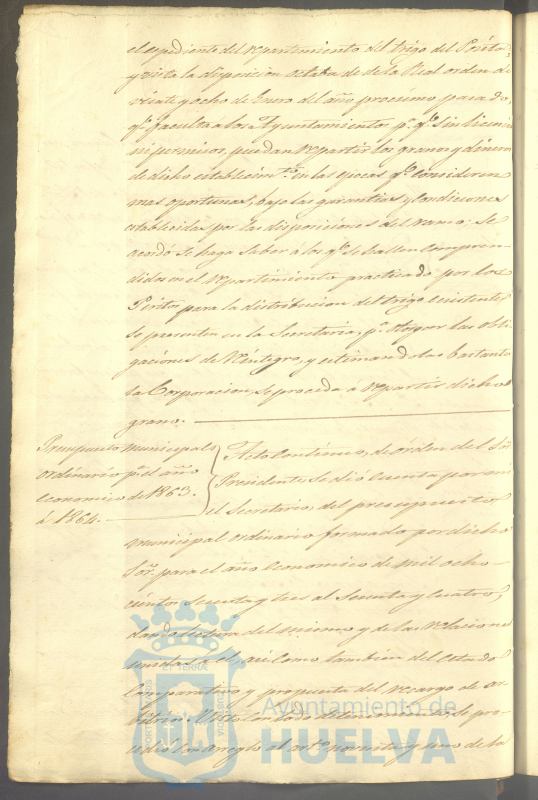 el expediente del repartimiento del trigo del Pósito;
y vista la disposicion octaba de de la Real orden de
veinte y ocho de Enero del año procsimo pasado,
qe. faculta á los Ayuntamientos pa. qe. sin licencia
ni permisos, puedan repartir los granos y dinero
de dicho establecimto. en las epocas qe. consideren
mas oportunas, bajo las garantias y condiciones
establecidas por las disposiciones del ramo; Se
acordó se haga saber á los qe. se hallen compren-
didos en el repartimiento practicado por los
Peritos para la distribucion del trigo existente
se presenten en la Secretaria, pa. otorgar las obli-
gaciones de reintegro, y estimandolas bastante
la Corporacion, se proceda á repartir dicho
grano.
Presupuesto municipal
ordinario pa. el año
economico de 1863.
á 1864.
Acto continuo, de órden del Sor.
Presidente, se dió cuenta por mi
el Secretario, del presupuesto
municipal ordinario formado por dicho
Sor. para el año economico de mil ocho-
cientos sesenta y tres al sesenta y cuatro,
dando lectura del mismo y de las relaciones
unidas á él, asi como tambien del estado
comparativo y propuesta del recargo de ar-
bitrios. Visto con todo detenimiento, se pro-
cedió con arreglo al arto. noventa y uno de la
PORTUS MARIS
ET TERRÆ
CUSTODIA
Ayuntamiento de
HUELVA